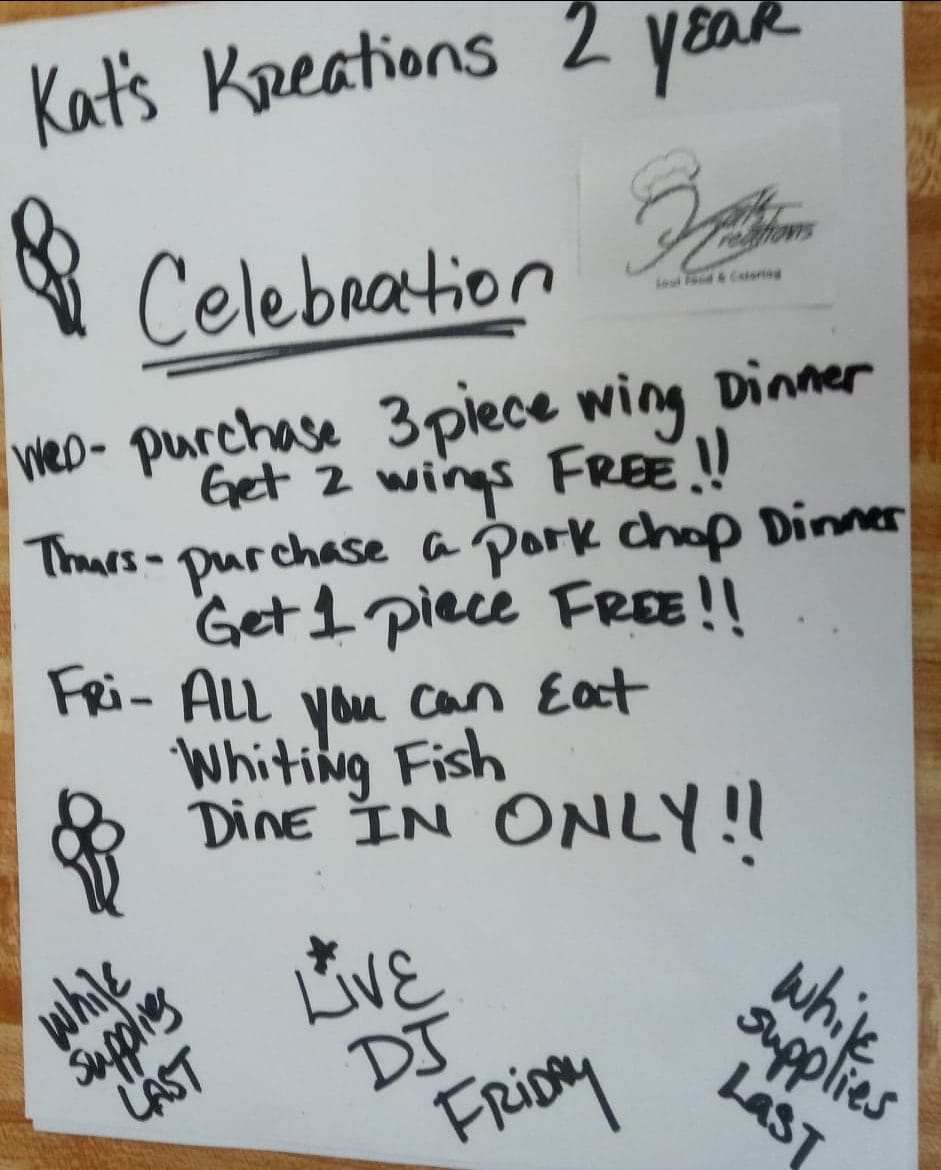 Kat's Kreations 2 year
Kat's
Kreations
Soul Food & Catering
Celebration
WED- purchase 3 piece wing Dinner
Get 2 wings FREE!!
Thurs- purchase a pork chop Dinner
Get 1 piece FREE!!
FRi- ALL you can Eat
Whiting Fish
DiNE IN ONLY!!
While
supplies
LAST
*LiVE
DJ
FRiDAY
While
supplies
LasT